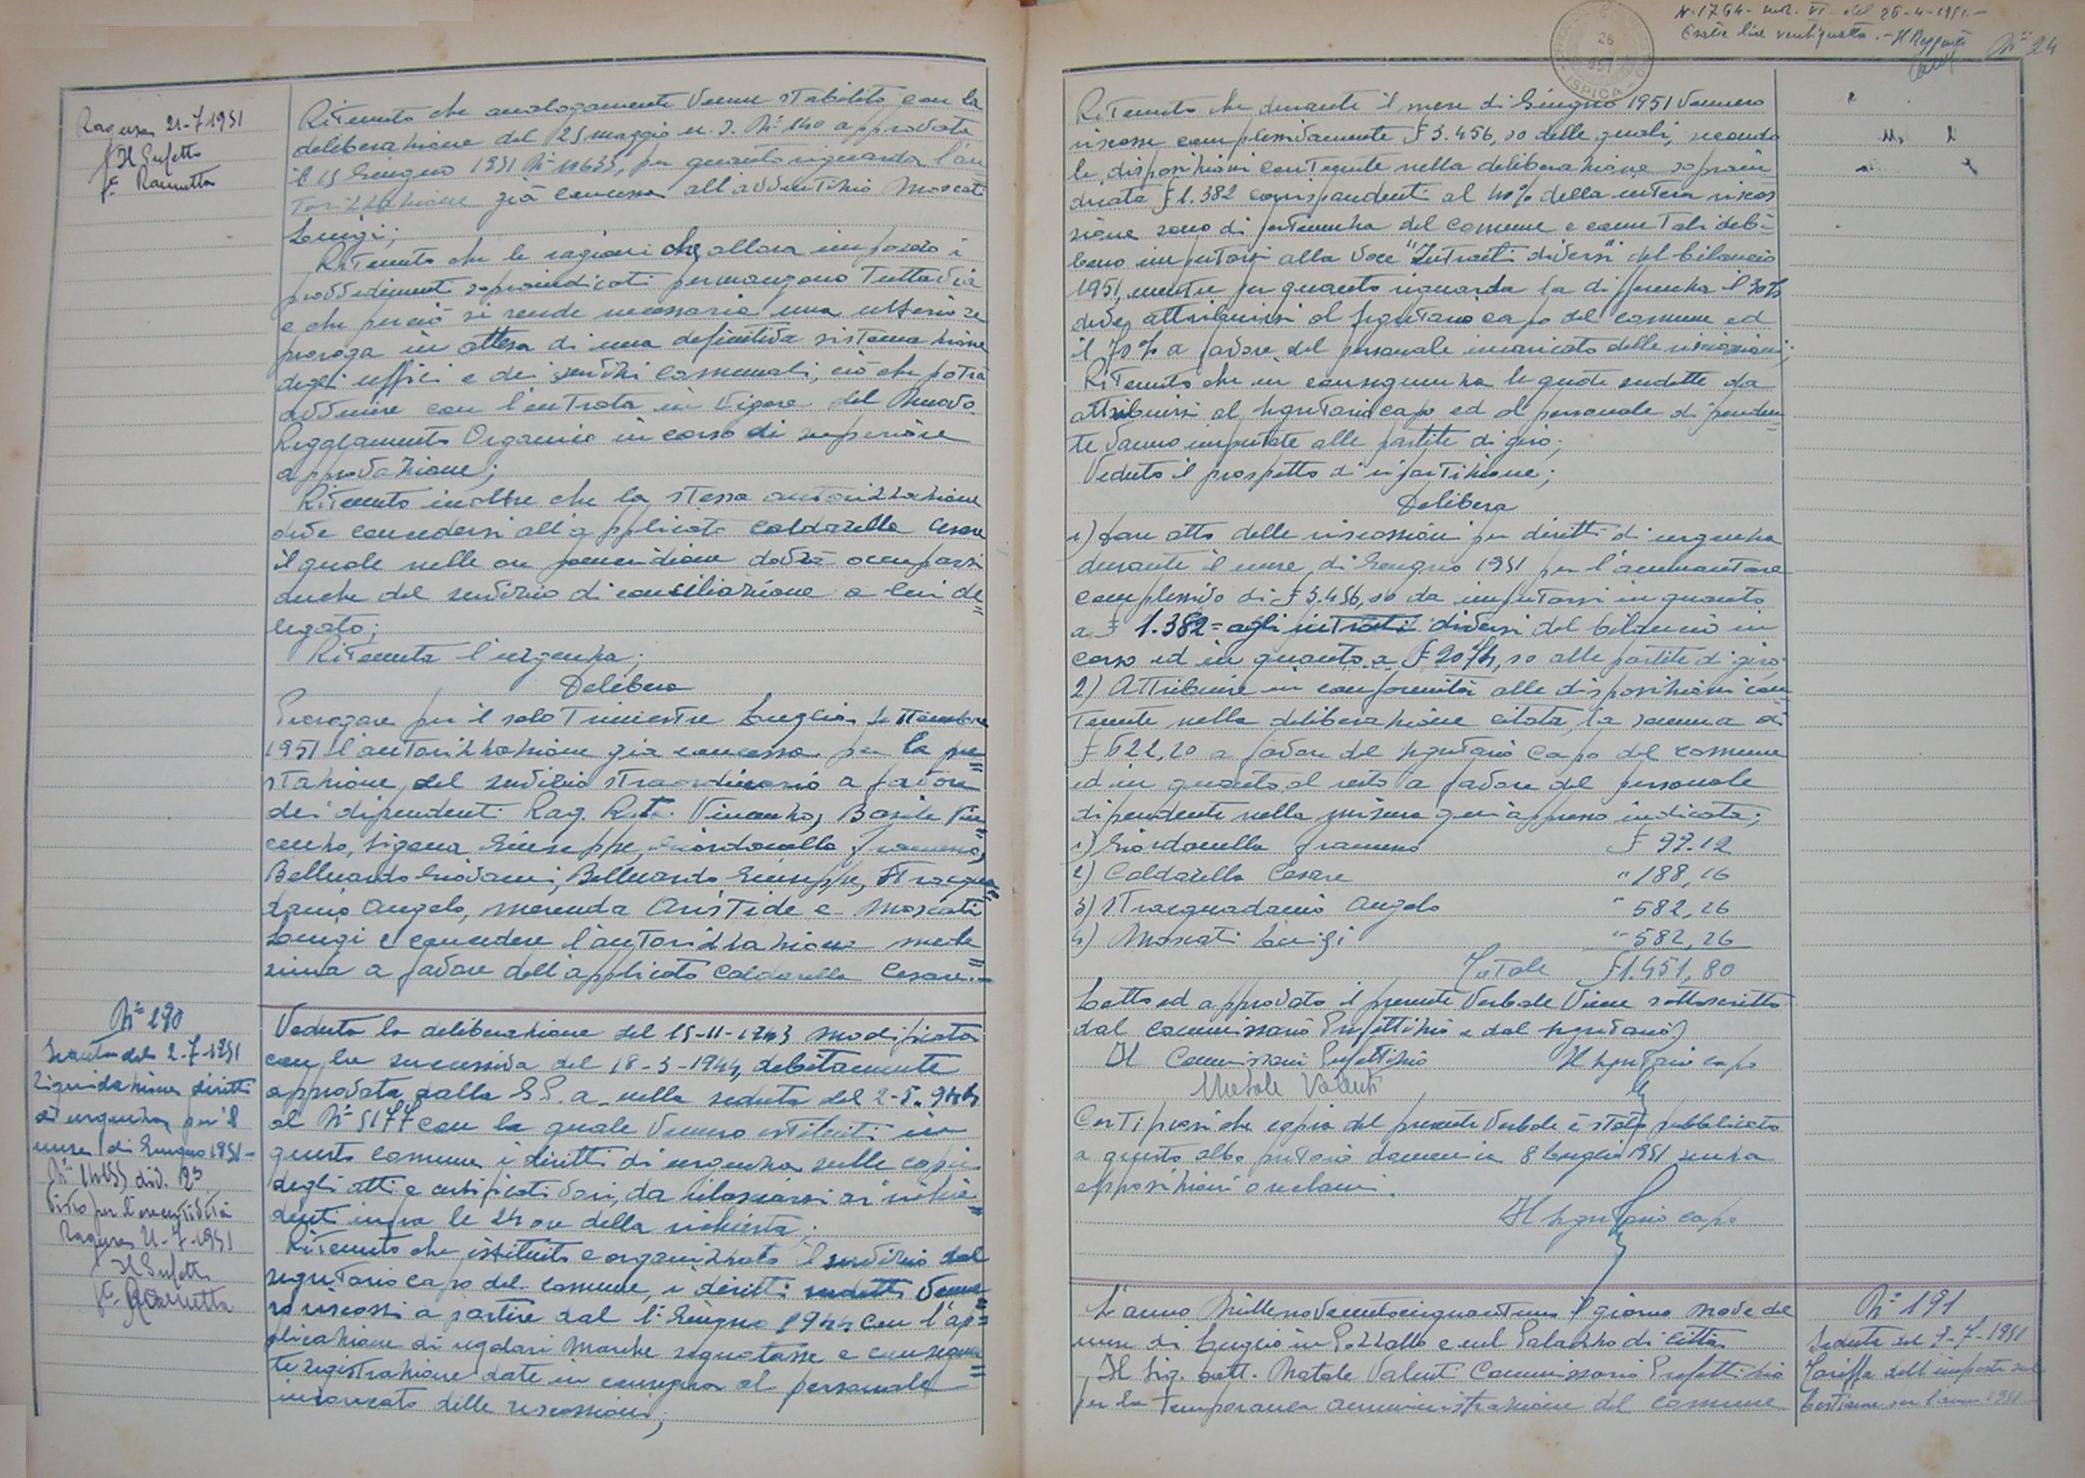 Ragusa 21-7-1951
Il Prefetto
Ritenuto che analogamente venne stabilito con la
deliberazione del 25 maggio u. s. N° 140 approvata
il 15 Giugno 1951 N° 11633, per quanto riguarda l'au
torizzazione già concessa all'avventizio Moscati
Luigi;
Ritenuto che le ragioni che allora imposero i
provvedimenti sopraindicati permangono tuttavia
e che perciò si rende necessaria una ulteriore
proroga in attesa di una definitiva sistemazione
degli uffici e dei servizi comunali, ciò che potrà
avvenire con l'entrata in vigore del nuovo
Regolamento Organico in corso di superiore
approvazione;
Ritenuto inoltre che la stessa autorizzazione
deve concedersi all'applicato Caldarella Cesare
il quale nelle ore pomeridiane dovrà occuparsi
anche del servizio di conciliazione a lui de=
legato;
Ritenuta l'urgenza;
Delibera
Prorogare per il solo trimestre Luglio Settembre
1951 l'autorizzazione già concessa per la pre=
stazione del servizio straordinario a favore
dei dipendenti Rag. Vincenzo, Basile Vin=
cenzo, Sigona Giuseppe, Giordanella Francesco,
Belluardo Giovanni, Belluardo Giuseppe, Stracqua=
danio Angelo, Merenda Aristide e Moscati
Luigi e concedere l'autorizzazione mede=
sima a favore dell'applicato Caldarella Cesare.=
N° 190
Seduta del 2-7-1951
Liquidazione diritti
di urgenza per il
mese di Giugno 1951-
N° 14455 div. 12^
Visto per l'esecutività
Ragusa 21-7-1951
Il Prefetto
Veduta la deliberazione del 15-11-1943 modificata
con la successiva del 18-3-1944, debitamente
approvata dalla G.P.A. nella seduta del 2-5-944
al N° 5177 con la quale vennero istituiti in
questo comune i diritti di urgenza sulle copie
degli atti e certificati vari, da rilasciarsi ai richie=
denti infra le 24 ore della richiesta;
Ritenuto che istituito e organizzato il servizio dal
segretario capo del comune, i diritti sudetti venne=
ro riscossi a partire dal 1° Giugno 1944 con l'ap=
plicazione di regolari marche segnatasse e conseguen=
te registrazione date in consegna al personale
incaricato delle riscossioni;
N. 1764 mod. VI - del 26-4-1951.-
Il Reggente
N° 24
26
951
ISPICA
Ritenuto che durante il mese di Giugno 1951 vennero
riscosse complessivamente £ 3.456,00 delle quali, secondo
le disposizioni contenute nella deliberazione soprain
dicata £ 1.382 corrispondenti al 40% della intera riscos
sione sono di pertinenza del comune e come tali deb=
bono imputarsi alla voce "Introiti diversi" del bilancio
1951, mentre per quanto riguarda la differenza il 30%
deve attribuirsi al segretario capo del comune ed
il 70% a favore del personale incaricato delle riscossioni;
Ritenuto che in conseguenza le quote sudette da
attribuirsi al segretario capo ed al personale dipenden=
te vanno imputate alle partite di giro;
Veduto il prospetto di ripartizione;
Delibera
1) Dare atto delle riscossioni per diritti di urgenza
durante il mese di Giugno 1951 per l'ammontare
complessivo di £ 3.456,00 da imputarsi in quanto
a £ 1.382= agli introiti diversi del bilancio in
corso ed in quanto a £ 2074,00 alle partite di giro
2) Attribuire in conformità alle disposizioni con
tenute nella deliberazione citata, la somma di
£ 622,20 a favore del segretario capo del comune
ed in quanto al resto a favore del personale
dipendente nella misura qui appresso indicata;
1) Giordanella Francesco £ 97.12
2) Caldarella Cesare " 188,16
3) Stracquadanio Angelo " 582,26
4) Moscati Luigi " 582,26
Totale £ 1.451,80
Letto ed approvato il presente verbale viene sottoscritto
dal Commissario Prefettizio e dal segretario
Il Commissario Prefettizio Il segretario capo
Natale Valenti
Certificasi che copia del presente verbale è stata pubblicata
a questo albo pretorio domenica 8 luglio 1951 senza
opposizioni o reclami.
Il segretario capo
L'anno millenovecentocinquantuno il giorno nove del
mese di luglio in Pozzallo e nel Palazzo di Città
Il Sig. Dott. Natale Valenti Commissario Prefettizio
per la temporanea amministrazione del comune
N° 191
Seduta del 7-7-1951
Tariffa dell'imposta sul
bestiame per l'anno 1951